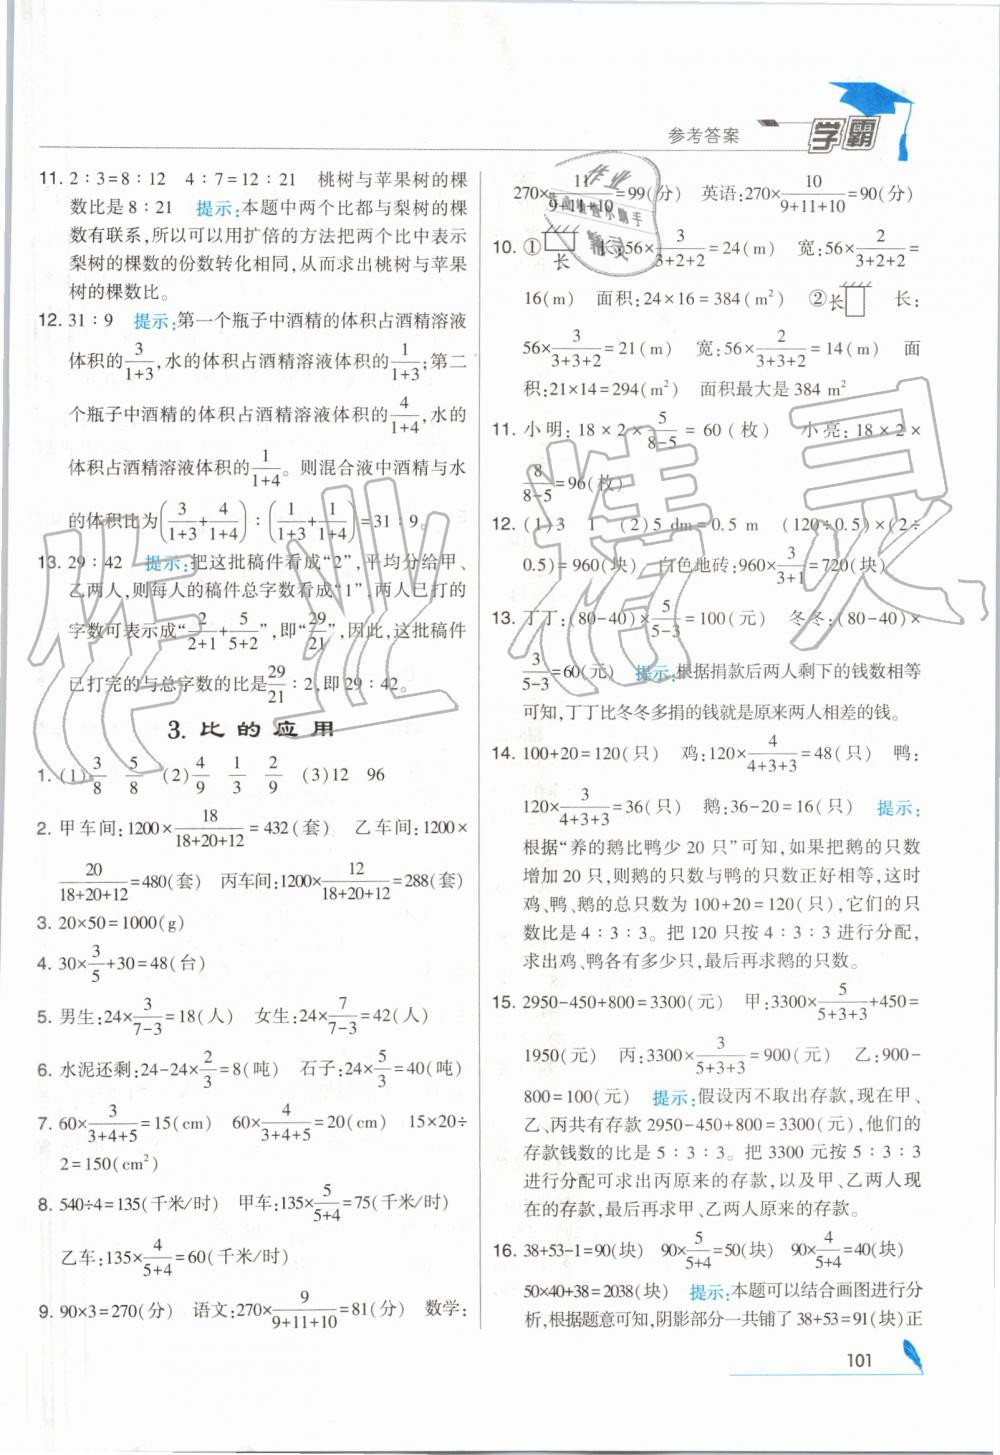 参考答案
学霸
11. 2∶3=8∶12　4∶7=12∶21　桃树与苹果树的棵
数比是 8∶21　提示:本题中两个比都与梨树的棵
数有联系,所以可以用扩倍的方法把两个比中表示
梨树的棵数的份数转化相同,从而求出桃树与苹果
树的棵数比。
12. 31∶9　提示:第一个瓶子中酒精的体积占酒精溶液
体积的3/(1+3),水的体积占酒精溶液体积的1/(1+3);第二
个瓶子中酒精的体积占酒精溶液体积的4/(1+4),水的
体积占酒精溶液体积的1/(1+4)。则混合液中酒精与水
的体积比为(3/(1+3)+4/(1+4))∶(1/(1+3)+1/(1+4))=31∶9。
13. 29∶42　提示:把这批稿件看成“2”,平均分给甲、
乙两人,则每人的稿件总字数看成“1”,两人已打的
字数可表示成“2/(2+1)+5/(5+2)”,即“29/21”,因此,这批稿件
已打完的与总字数的比是29/21∶2,即 29∶42。
3. 比的应用
1. (1)3/8　5/8　(2)4/9　1/3　2/9　(3)12　96
2. 甲车间:1200×18/(18+20+12)=432(套)　乙车间:1200×
20/(18+20+12)=480(套)　丙车间:1200×12/(18+20+12)=288(套)
3. 20×50=1000(g)
4. 30×3/5+30=48(台)
5. 男生:24×3/(7-3)=18(人)　女生:24×7/(7-3)=42(人)
6. 水泥还剩:24-24×2/3=8(吨)　石子:24×5/3=40(吨)
7. 60×3/(3+4+5)=15(cm)　60×4/(3+4+5)=20(cm)　15×20÷
2=150(cm²)
8. 540÷4=135(千米/时)　甲车:135×5/(5+4)=75(千米/时)
乙车:135×4/(5+4)=60(千米/时)
9. 90×3=270(分)　语文:270×9/(9+11+10)=81(分)　数学:
270×11/(9+11+10)=99(分)　英语:270×10/(9+11+10)=90(分)
10. ①长　长:56×3/(3+2+2)=24(m)　宽:56×2/(3+2+2)=
16(m)　面积:24×16=384(m²)　②长　长:
56×3/(3+3+2)=21(m)　宽:56×2/(3+3+2)=14(m)　面
积:21×14=294(m²)　面积最大是 384 m²
11. 小明:18×2×5/(8-5)=60(枚)　小亮:18×2×
8/(8-5)=96(枚)
12. (1)3　1　(2)5 dm=0.5 m　(120÷0.5)×(2÷
0.5)=960(块)　白色地砖:960×3/(3+1)=720(块)
13. 丁丁:(80-40)×5/(5-3)=100(元)　冬冬:(80-40)×
3/(5-3)=60(元)　提示:根据捐款后两人剩下的钱数相等
可知,丁丁比冬冬多捐的钱就是原来两人相差的钱。
14. 100+20=120(只)　鸡:120×4/(4+3+3)=48(只)　鸭:
120×3/(4+3+3)=36(只)　鹅:36-20=16(只)　提示:
根据“养的鹅比鸭少 20 只”可知,如果把鹅的只数
增加 20 只,则鹅的只数与鸭的只数正好相等,这时
鸡、鸭、鹅的总只数为 100+20=120(只),它们的只
数比是 4∶3∶3。把 120 只按 4∶3∶3 进行分配,
求出鸡、鸭各有多少只,最后再求鹅的只数。
15. 2950-450+800=3300(元)　甲:3300×5/(5+3+3)+450=
1950(元)　丙:3300×3/(5+3+3)=900(元)　乙:900-
800=100(元)　提示:假设丙不取出存款,现在甲、
乙、丙共有存款 2950-450+800=3300(元),他们的
存款钱数的比是 5∶3∶3。把 3300 元按 5∶3∶3
进行分配可求出丙原来的存款,以及甲、乙两人现
在的存款,最后再求甲、乙两人原来的存款。
16. 38+53-1=90(块)　90×5/(5+4)=50(块)　90×4/(5+4)=40(块)
50×40+38=2038(块)　提示:本题可以结合画图进行分
析,根据题意可知,阴影部分一共铺了 38+53=91(块)正
101
作业精灵